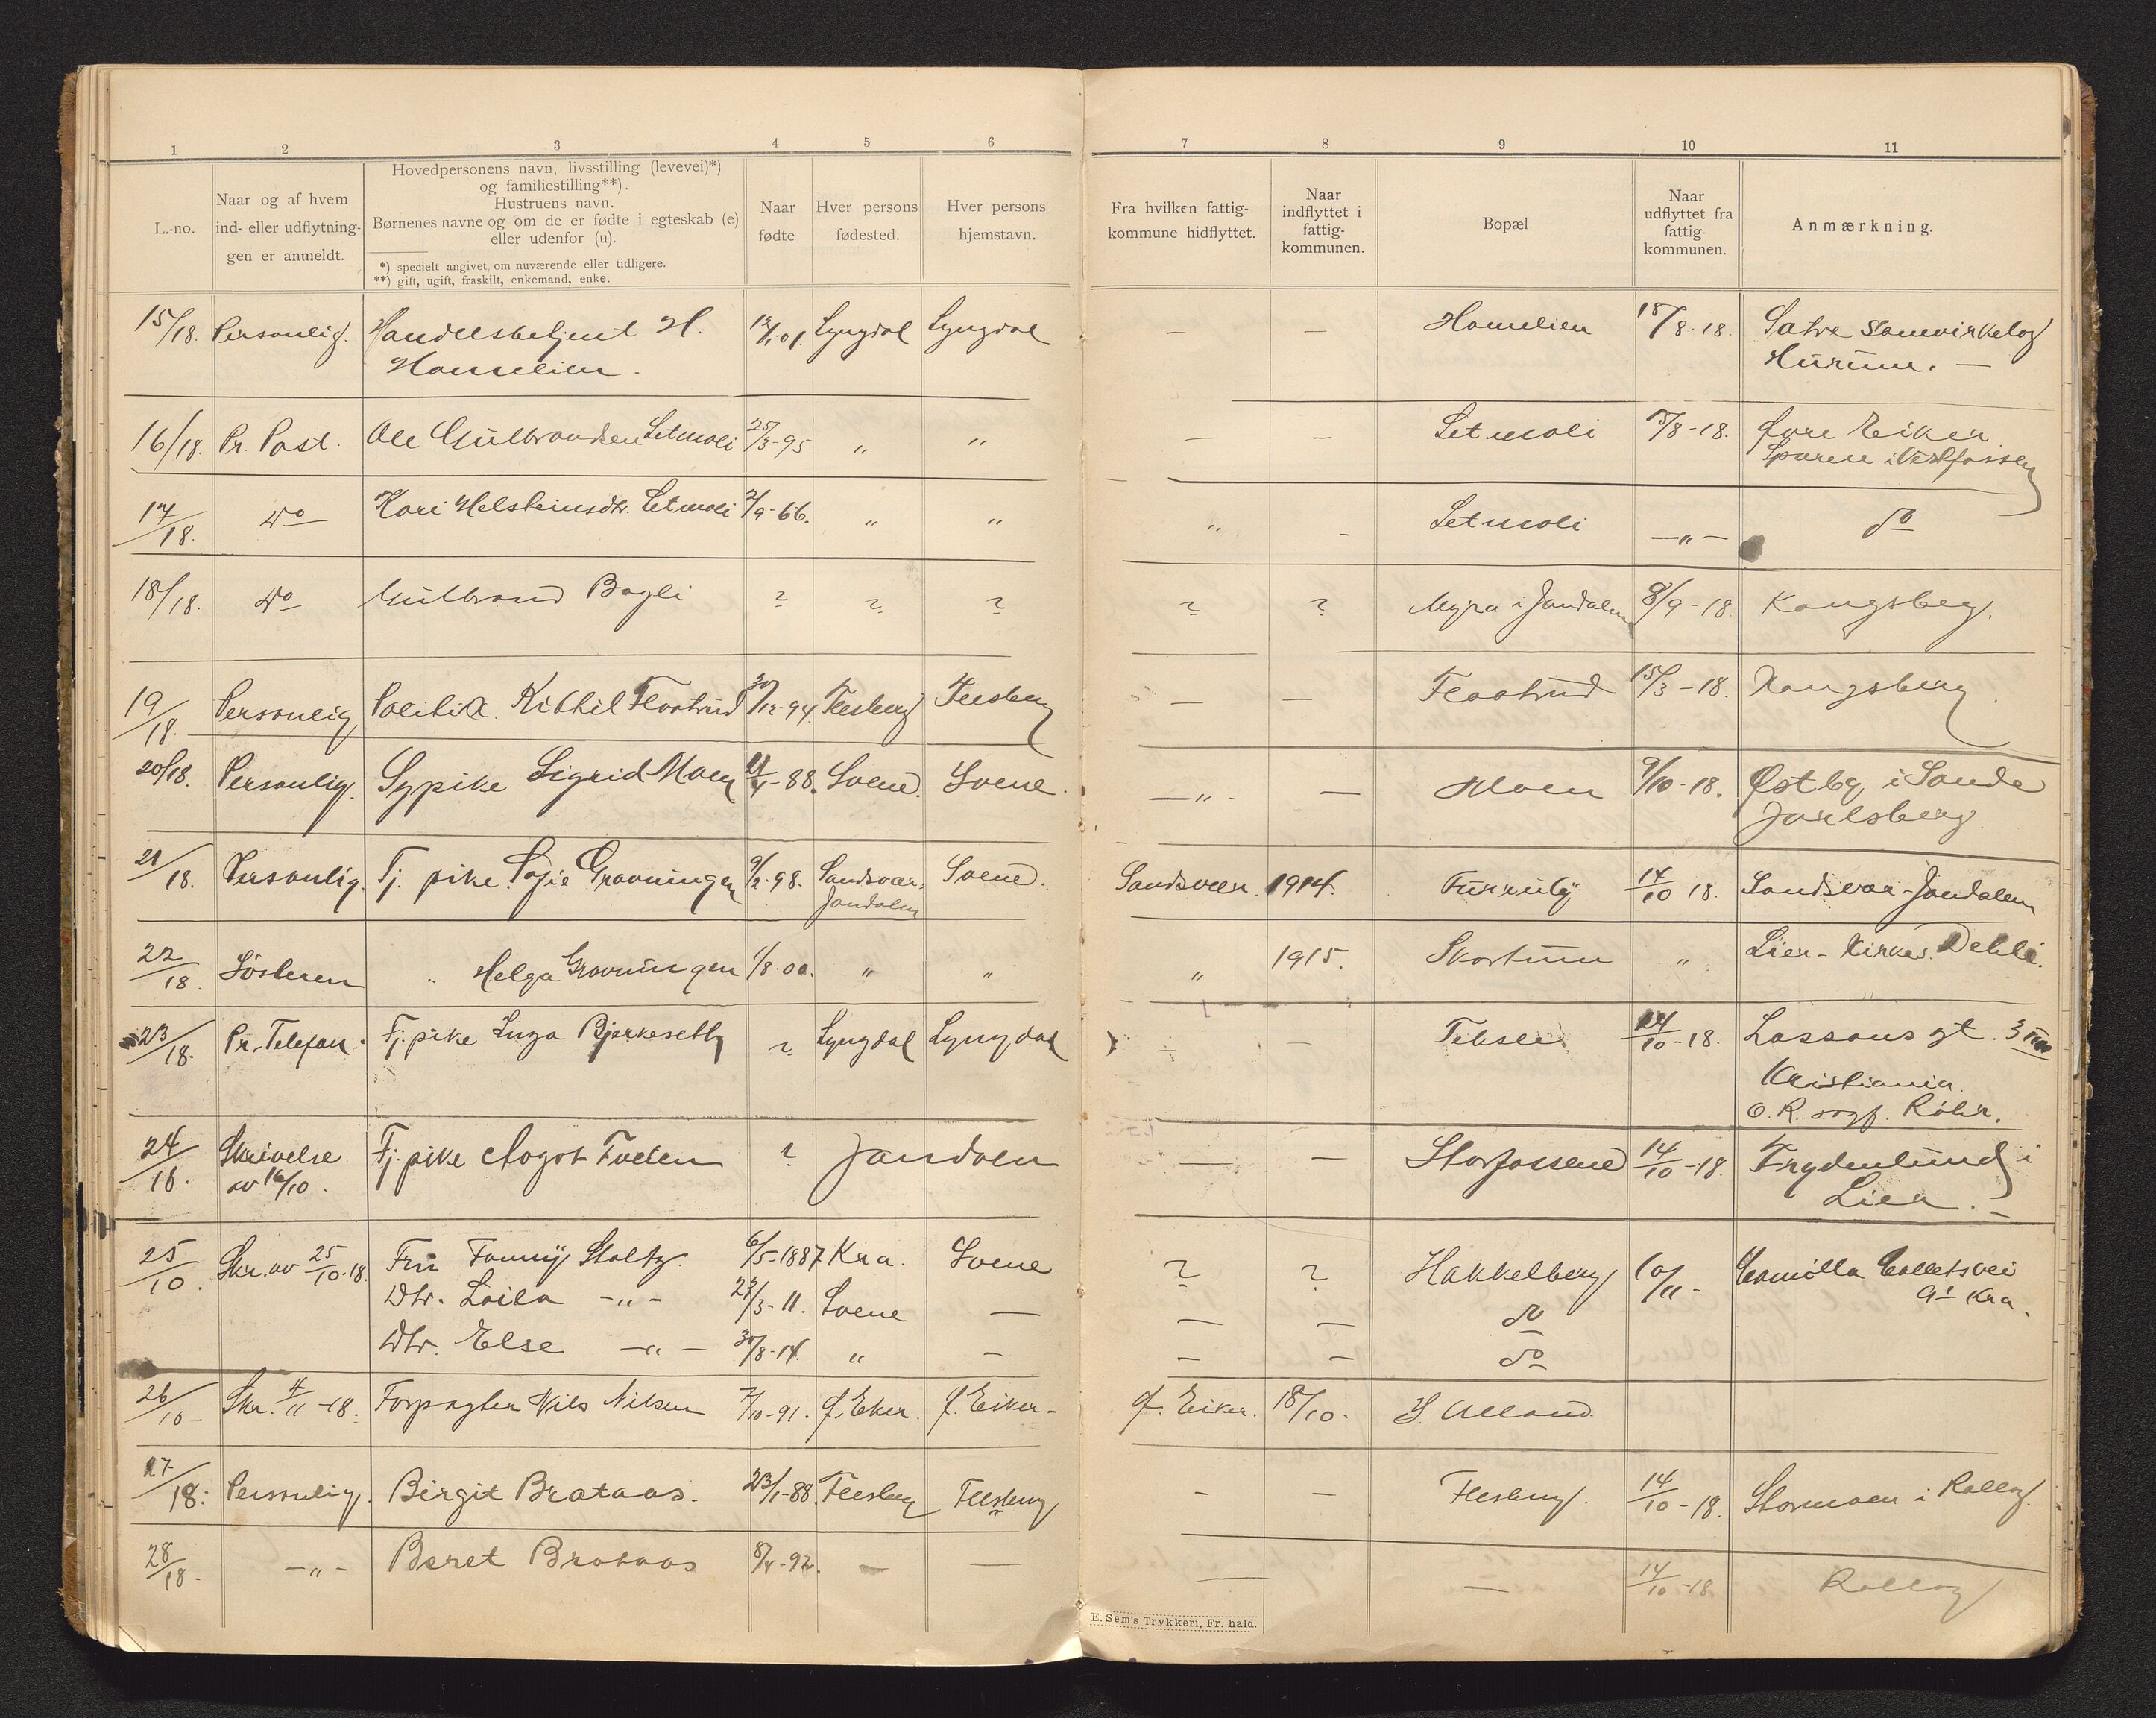 1 2 3 4 5 6 7 8 9 10 11
L.-no.
Naar og af hvem
ind- eller udflytnin-
gen er anmeldt.
Hovedpersonens navn, livsstilling (levevei)*)
og familiestilling**).
Hustruens navn.
Børnenes navne og om de er fødte i egteskab (e)
eller udenfor (u).
*) specielt angivet, om nuværende eller tidligere.
**) gift, ugift, fraskilt, enkemand, enke.
Naar
fødte
Hver persons
fødested.
Hver persons
hjemstavn.
Fra hvilken fattig-
kommune hidflyttet.
Naar
indflyttet i
fattig-
kommunen.
Bopæl
Naar
udflyttet fra
fattig-
kommunen.
Anmærkning.
15/18. Personlig. Handelsbetjent H. 12/1-01. Lyngdal Lyngdal — — Homelien 18/8-18. Sætre Samvirkelag
Homelien. Hurum. —
16/18. Pr. Post. Ole Gulbrandsen Setmoli 25/3-95 „ „ — — Setmoli 15/8-18. Øvre Eiker
i Vestfossen
17/18. do Kari Helsteinsdtr. Setmoli 2/9-66. „ „ „ - Setmoli —„— do
18/18. do Gulbrand Bagli ? ? ? ? ? Myra i Jondalen 8/9-18 Kongsberg.
19/18. Personlig Kittil Flaatrud 30/12-94 Flesberg Flesberg — — Flaatrud 15/3-18. Kongsberg
20/18. Personlig. Sypike Sigrid Moen -88. Svene. Svene. —„- — Moen 9/10-18. Østby i Sande
Jarlsberg
21/18. Personlig. Tj. pike Sofie Gravningen 9/2-98. Sandsvær. Svene. Sandsvær. 1914. Furruly 14/10 18. Sandsvær-Jondalen
Jondalen
22/18. Søsteren „ Helga Gravningen 1/8-00. „ „ „ 1915. Skartum „ Lier-Kirkes. Dehli.
23/18. Pr. Telefon. Tj. pike Inga Bjerkeseth ? Lyngdal Lyngdal — — 14/10-18. Lassons gt. 3
Kristiania.
O. R. sagf. Röhr.
24/18. Skrivelse Tj. pike Aagot Tveten ? Jondalen — — Storfossene 14/10-18. Frydenlund i
av 16/10. Lier. —
25/10. Skr. av 25/10-18. Fru Fanny Stoltz. 6/5-1887 Kra. Svene ? ? Hakkelberg 10/11- Camilla Colletsvei
9 Kra.
Dtr. Laila -„- 22/3-11. Svene — — — do
Dtr. Else —„— 30/8-14. „ — — — do
26/10- Skr. 4/11-18. Forpagter Nils Nilsen 7/10-91. Ø. Eker. Ø. Eiker- Ø. Eiker. 18/10. Aaland.
27/18: Personlig. Birgit Brataas. 23/1-88. Flesberg Flesberg - — Flesberg. 14/10-18. Stormoen i Rollag.
28/18. —„— Beret Brataas 8/4-92. — — — — 14/10-18 Rollag
E. Sem's Trykkeri, Fr. hald.